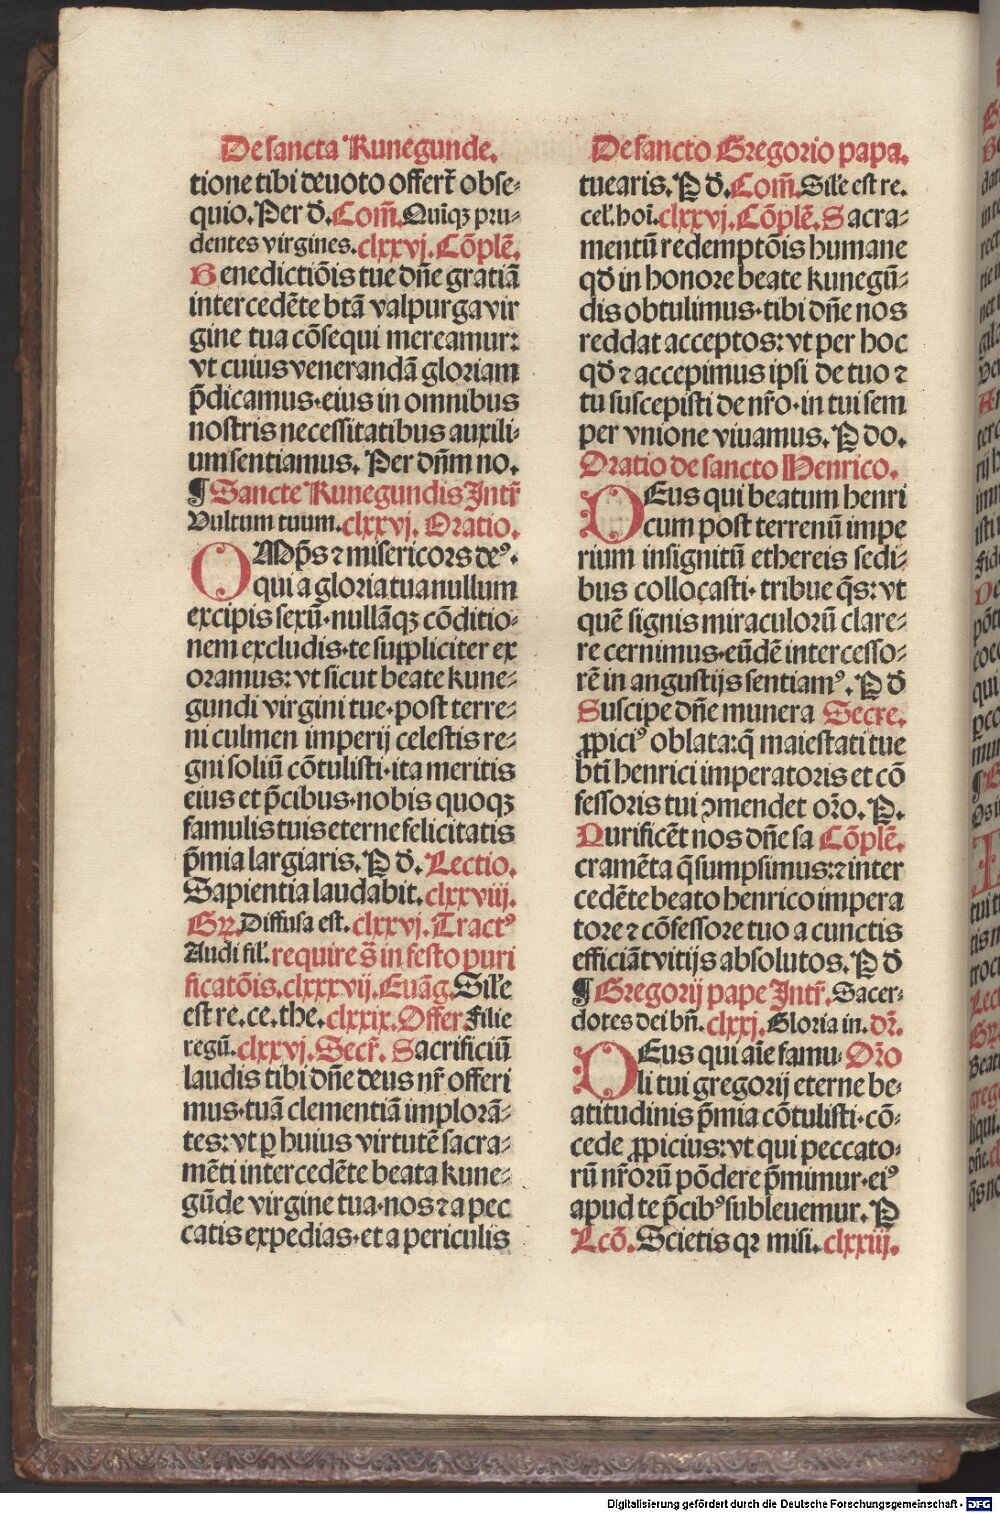 De sancta Kunegunde.
tione tibi deuoto offert̃ obse⸗
quio. Per d̄. Com̃. Quīqꝫ pru⸗
dentes virgines. clxxvj. Cōplẽ.
Benedictiōis tue dñe gratiā
intercedēte btā valpurga vir
gine tua cōsequi mereamur:
vt cuius venerandā gloriam
p̄dicamus·eius in omnibus
nostris necessitatibus auxili⸗
um sentiamus. Per dñm no.
¶ Sancte Kunegundis Intr̃
Vultum tuum. clxxvj. Oratio.
OMp̄s ⁊ misericors deꝰ·
qui a gloria tua nullum
excipis sexū·nullāqꝫ cōditio⸗
nem excludis·te suppliciter ex
oramus: vt sicut beate kune⸗
gundi virgini tue·post terre⸗
ni culmen imperij celestis re⸗
gni soliū cōtulisti·ita meritis
eius et p̄cibus·nobis quoqꝫ
famulis tuis eterne felicitatis
p̄mia largiaris. P d̄. Lectio.
Sapientia laudabit. clxxviij.
Gꝛ. Diffusa est. clxxvj. Tractꝰ
Audi fil̓. require s̄ in festo puri
ficatōis. clxxxvij. Euāg. Sil̓e
est re. ce. the. clxxix. Offer Filie
regū. clxxvj. Secr̃. Sacrificiū
laudis tibi dñe deus nr̃ offeri
mus·tuā clementiā implorā⸗
tes: vt ꝑ huius virtutē sacra⸗
mēti intercedēte beata kune⸗
gūde virgine tua·nos ⁊ a pec
catis expedias·et a periculis
De sancto Gregorio papa.
tuearis. P d̄. Com̃. Sil̓e est re.
cel. hoī. clxxvj. Cōplẽ. Sacra⸗
mentū redemptōis humane
qd̄ in honore beate kunegū⸗
dis obtulimus·tibi dñe nos
reddat acceptos: vt per hoc
qd̄ ⁊ accepimus ipsi de tuo ⁊
tu suscepisti de nr̃o·in tui sem
per vnione viuamus. P do.
Oratio de sancto Henrico.
DEus qui beatum henri
cum post terrenū impe
rium insignitū ethereis sedi⸗
bus collocasti·tribue q̄s: vt
quē signis miraculorū clare⸗
re cernimus·eūdē intercesso⸗
rē in angustijs sentiamꝰ. P d̄
Suscipe dñe munera Secre.
ꝓpiciꝰ oblata: q̄ maiestati tue
bti̅ henrici imperatoris et cō
fessoris tui ↄmendet or̃o. P.
Purificēt nos dñe sa Cōplẽ.
cramēta q̄ sumpsimus: ⁊ inter
cedēte beato henrico impera
tore ⁊ cōfessore tuo a cunctis
efficiāt vitijs absolutos. P d̄
¶ Gregorij pape Intr̃. Sacer⸗
dotes dei bn̄. clxxj. Gloria in. or̃.
DEus qui aīe famu⸗ Or̃o
li tui gregorij eterne be⸗
atitudinis p̄mia cōtulisti·cō⸗
cede ꝓpicius: vt qui peccato⸗
rū nr̃orū pōdere p̄mimur·eiꝰ
apud te p̄cibꝰ subleuemur. P
Lcō. Scietis qꝛ misi. clxxiij.
Digitalisierung gefördert durch die Deutsche Forschungsgemeinschaft - DFG